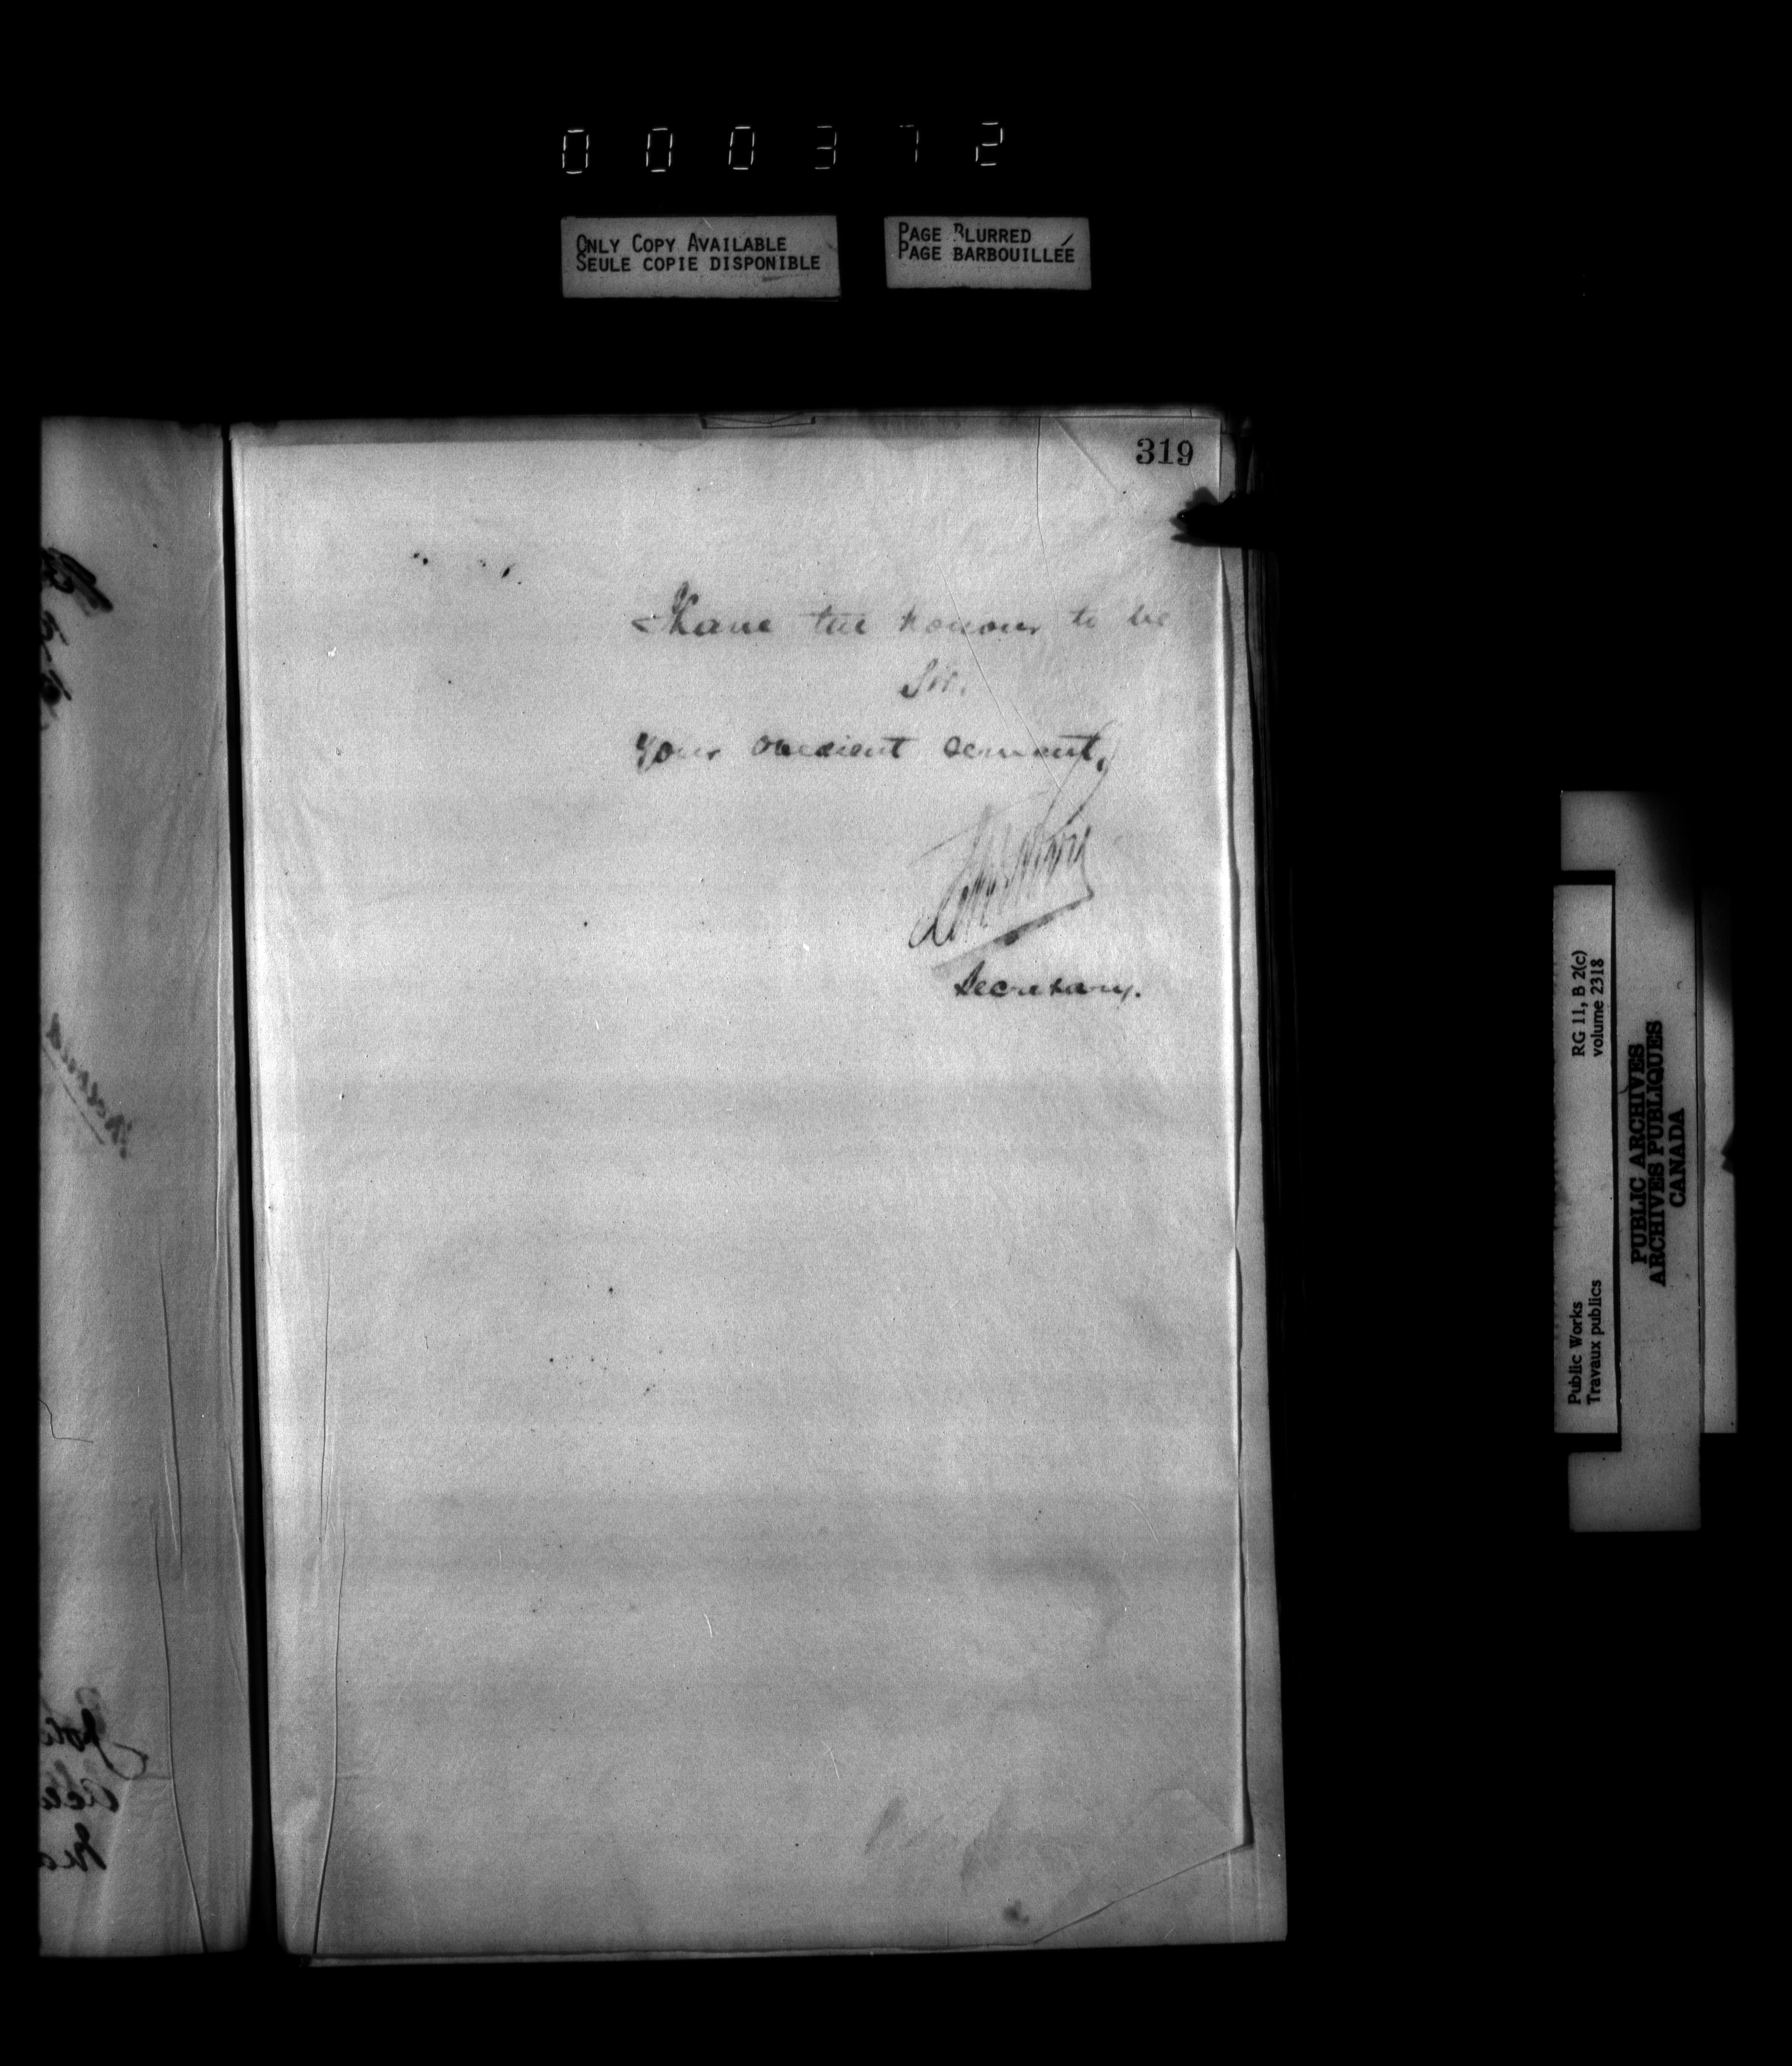 000372
ONLY COPY AVAILABLE
SEULE COPIE DISPONIBLE
PAGE BLURRED
PAGE BARBOUILLÉE
319
I have the honour to be
Sir.
Your obedient servant,
Secretary.
RG 11, B 2(c)
volume 2318
Public Works
Travaux publics
PUBLIC ARCHIVES
ARCHIVES PUBLIQUES
CANADA